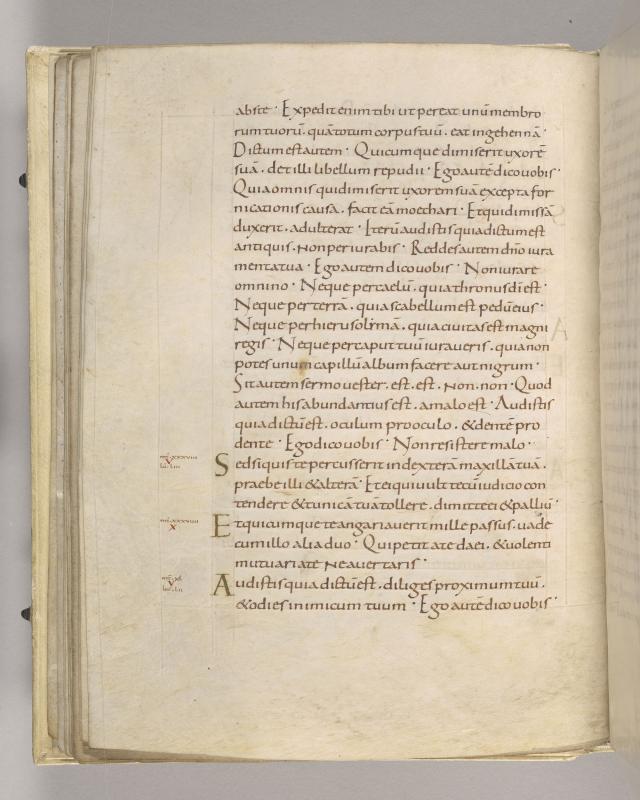 abste · Expedit enim tibi ut pereat unū membro
rum tuorū. quā totum corpus tuū. eat in gehennā ·
Dictum est autem · Quicumque dimiserit uxorē
suā. det illi libellum repudii · Ego autē dico vobis ·
Quia omnis qui dimiserit uxorem suā excepta for
nicationis causa. facit eā moechari · Et qui dimissā
duxerit. adulterat · Iterū audistis quia dictum est
antiquis. Non periurabis · Reddes autem dn̄o iura
menta tua · Ego autem dico vobis · Non iurare
omnino · Neque per caelū. quia thronus dī est ·
Neque per terrā. quia scabellum est pedū eius ·
Neque per hierusolimā. quia civitas est magni
regis · Neque per caput tuū iuraveris. quia non
potes unum capillū album facere aut nigrum ·
Sit autem sermo vester. est. est. Non. non · Quod
autem his abundantius est. a malo est · Audistis
quia dictū est. oculum pro oculo. & dentē pro
dente · Ego dico vobis · Non resistere malo ·
Sed si quis te percusserit in dexterā maxillā tuā.
praebe illi & alterā · Et ei qui vult tecū iudicio con
tendere & tunicā tuā tollere. dimitte ei & palliū ·
Et quicumque te angariaverit mille passus. vade
cum illo alia duo · Qui petit a te da ei. & volenti
mutuari a te ne avertaris ·
Audistis quia dictū est. diliges proximum tuū.
& odies inimicum tuum · Ego autē dico vobis ·
mt. xxxviii
v
mt. xxxviiii
x
mt. xl
v